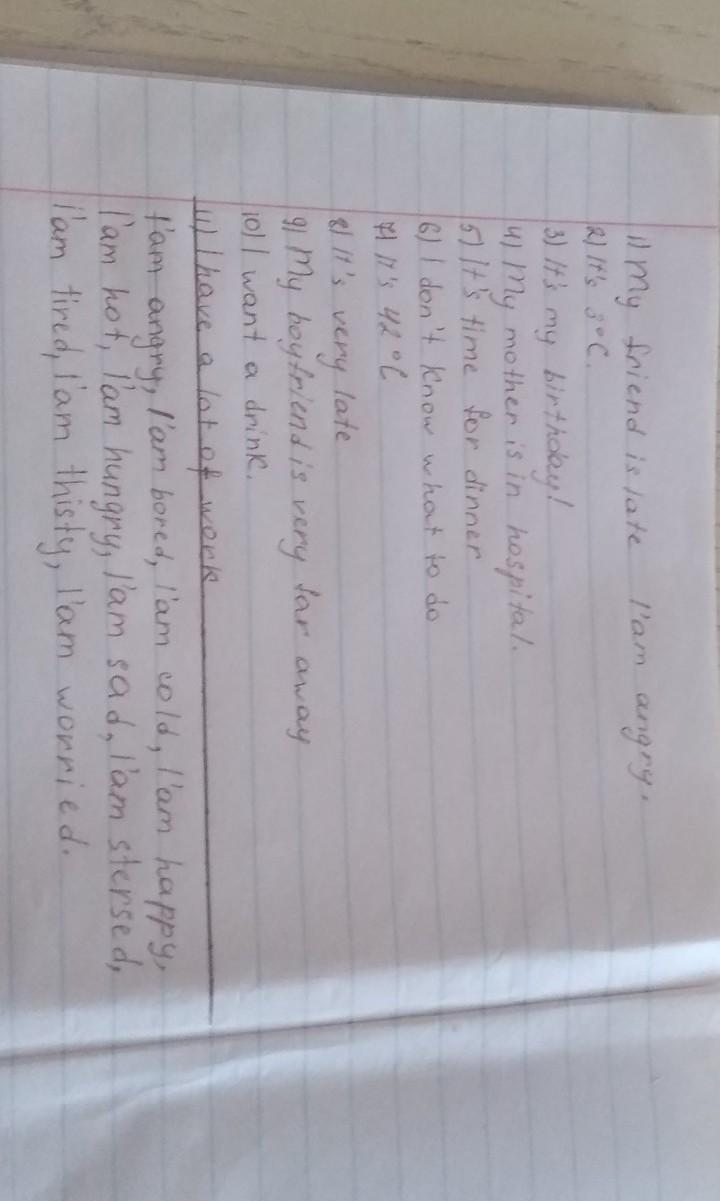 1) My friend is late I'am angry.
2) It's 3°C.
3) It's my birthday!
4) My mother is in hospital.
5) It's time for dinner
6) I don't know what to do
7) It's 42°C
8) It's very late
9) My boyfriend is very far away
10) I want a drink.
11) I have a lot of work
I'am angry, I'am bored, I'am cold, I'am happy,
I'am hot, I'am hungry, I'am sad, I'am stersed,
I'am tired, I'am thisty, I'am worried.